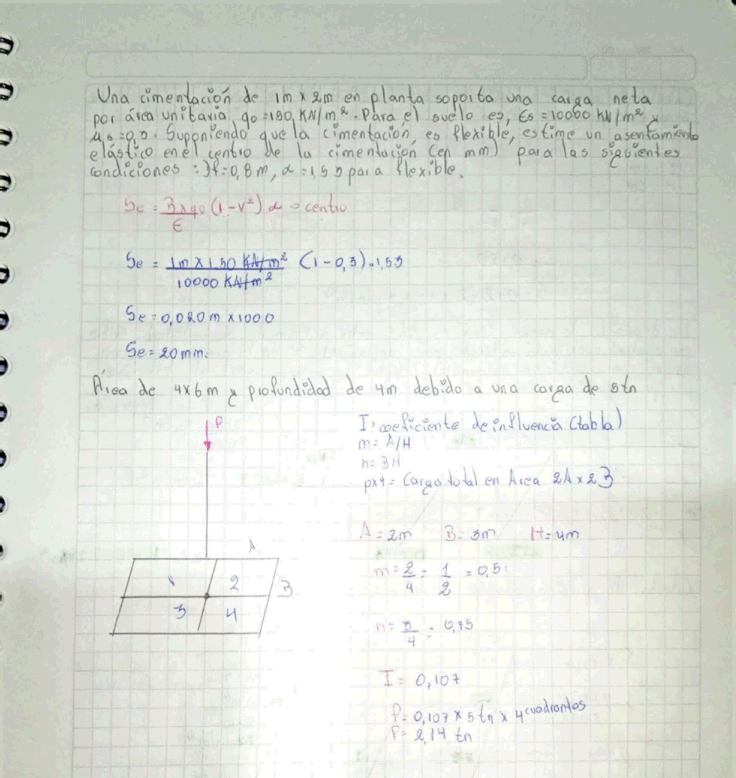 Una cimentación de 1m x 2m en planta soporta una carga neta
por área unitaria, qo=150, KN/m². Para el suelo es, Es=10000 KN/m² y
μs=0,3. Suponiendo que la cimentación es flexible, estime un asentamiento
elástico en el centro de la cimentación (en mm) para las siguientes
condiciones: Df=0,8m, α=1,53 para flexible.
Se = Bxqo (1-v²) α → centro
E
Se = 1m x 1,50 KN/m² (1-0,3).1,53
10000 KN/m²
Se=0,020m x1000
Se=20mm.
Área de 4x6m y profundidad de 4m debido a una carga de 5tn
P
A
1
2
B
3
4
I: coeficiente de influencia (tabla)
m= A/H
n= BH
px4= Carga total en Area 2A x 2B
A=2m B=3m H=4m
m=2/4=1/2=0,5
n=3/4=0,75
I= 0,107
P= 0,107 x 5tn x 4 cuadrantes
P= 2,14 tn